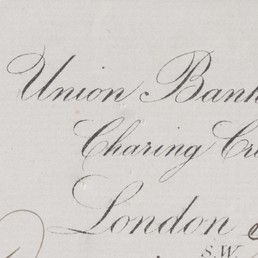 Union Bank
Charing Cr
London
S.W.